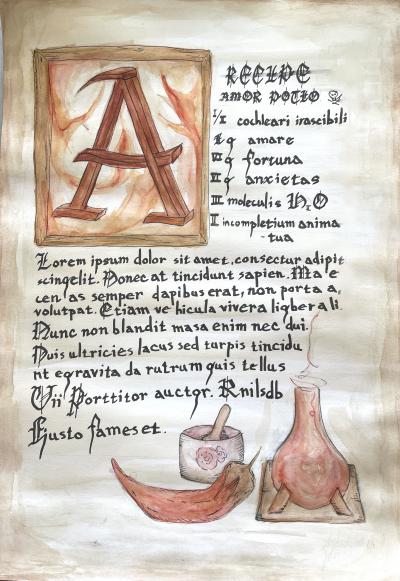 A
RECIPE
AMOR POTIO
1/I cochleari irascibili
I g amare
VII g fortuna
II g anxietas
III moleculis H2O
I incompletium anima
- tua
Lorem ipsum dolor sit amet, consectur adipit
scingelit. Donec at tincidunt sapien. Ma e
cen as semper dapibus erat, non porta a,
volutpat. Etiam ve hicula vivera ligher a li.
Nunc non blandit masa enim nec dui.
Duis ultricies lacus sed turpis tincidu
nt egravita da rutrum quis tellus
Vii Porttitor auctor. Rnilsdb
Husto fames et.